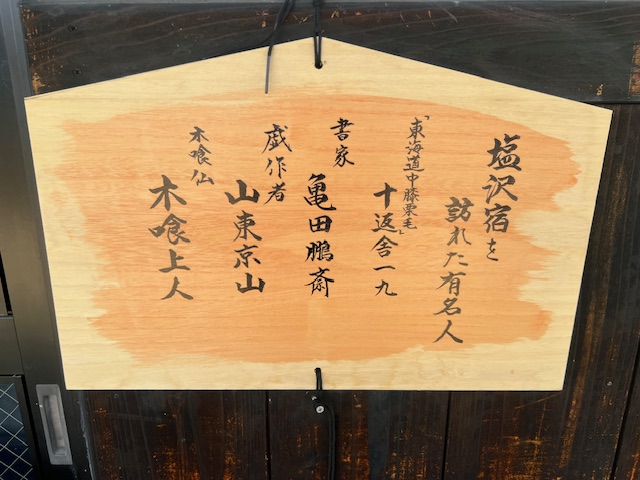 塩沢宿を
訪れた有名人
「東海道中膝栗毛」
十返舎一九
書家
亀田鵬斎
戯作者
山東京山
木喰仏
木喰上人